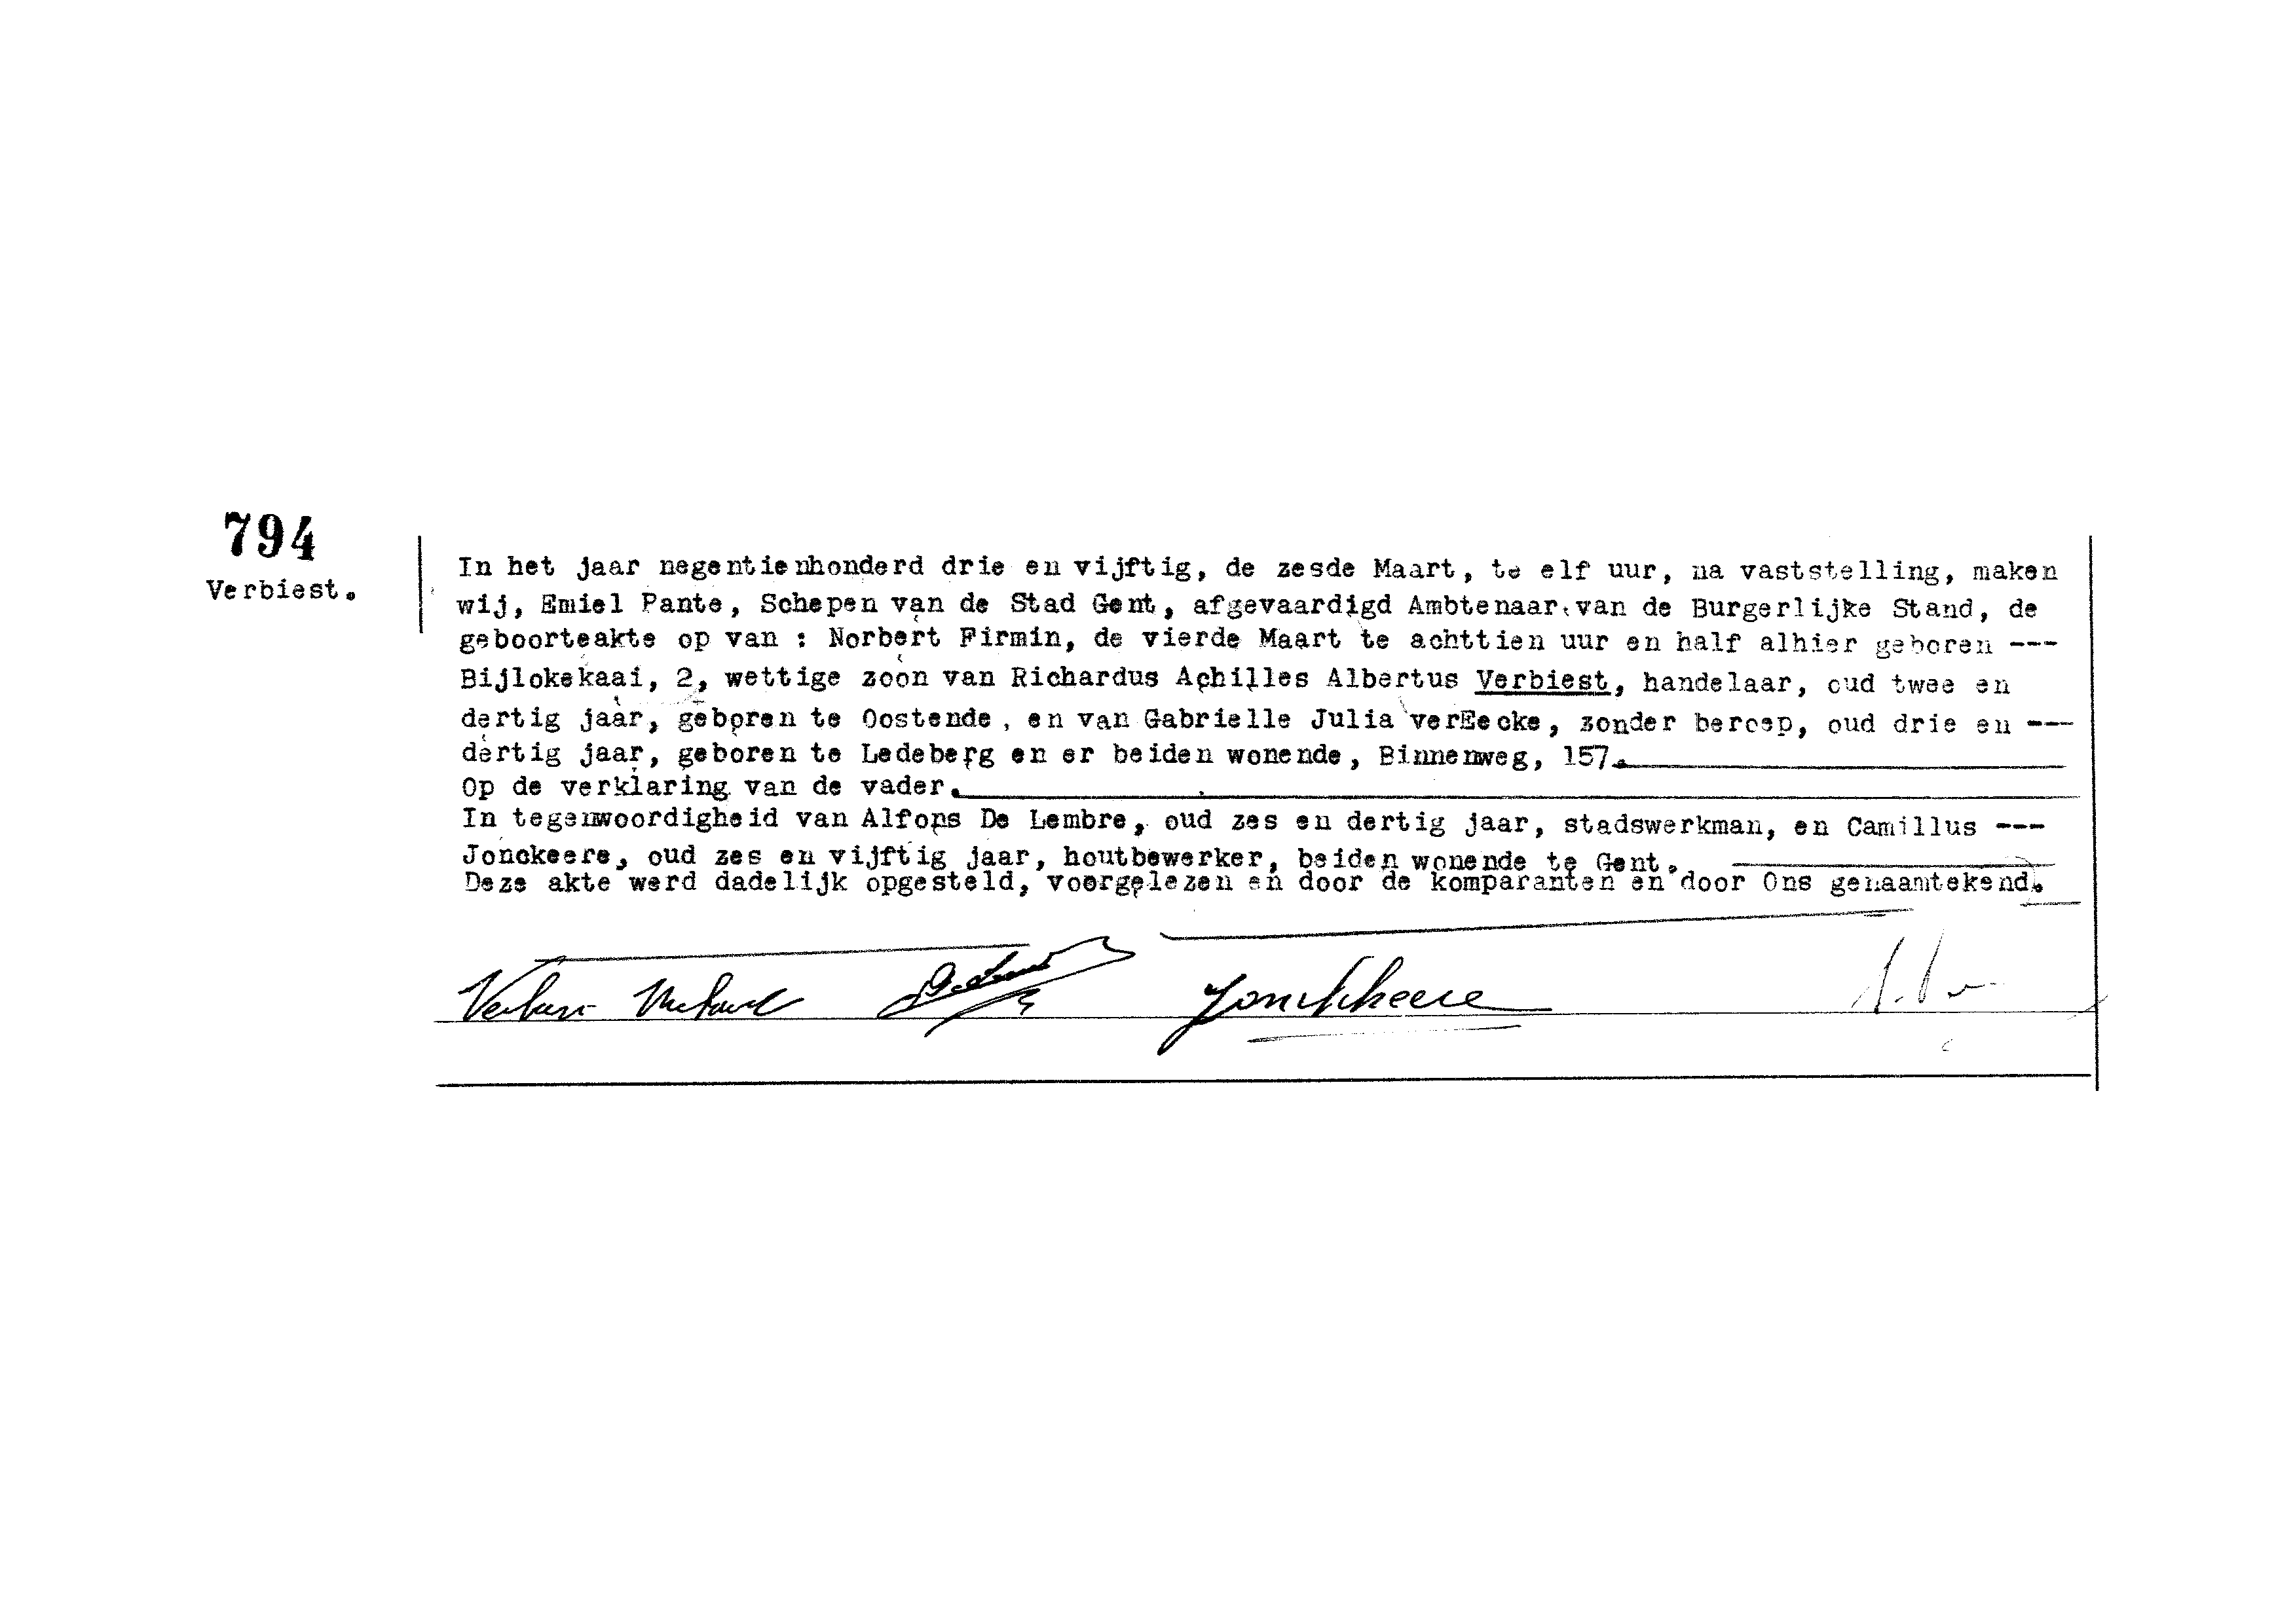 794
Verbiest.
In het jaar negentienhonderd drie en vijftig, de zesde Maart, te elf uur, na vaststelling, maken
wij, Emiel Pante, Schepen van de Stad Gent, afgevaardigd Ambtenaar van de Burgerlijke Stand, de
geboorteakte op van : Norbert Firmin, de vierde Maart te achttien uur en half alhier geboren ---
Bijlokekaai, 2, wettige zoon van Richardus Achilles Albertus Verbiest, handelaar, oud twee en
dertig jaar, geboren te Oostende, en van Gabrielle Julia verEecke, zonder beroep, oud drie en ---
dertig jaar, geboren te Ledeberg en er beiden wonende, Binnenweg, 157.
Op de verklaring van de vader.
In tegenwoordigheid van Alfons De Lembre, oud zes en dertig jaar, stadswerkman, en Camillus ---
Jonckeere, oud zes en vijftig jaar, houtbewerker, beiden wonende te Gent.
Deze akte werd dadelijk opgesteld, voorgelezen en door de komparanten en door Ons genaamtekend.
Jonckheere